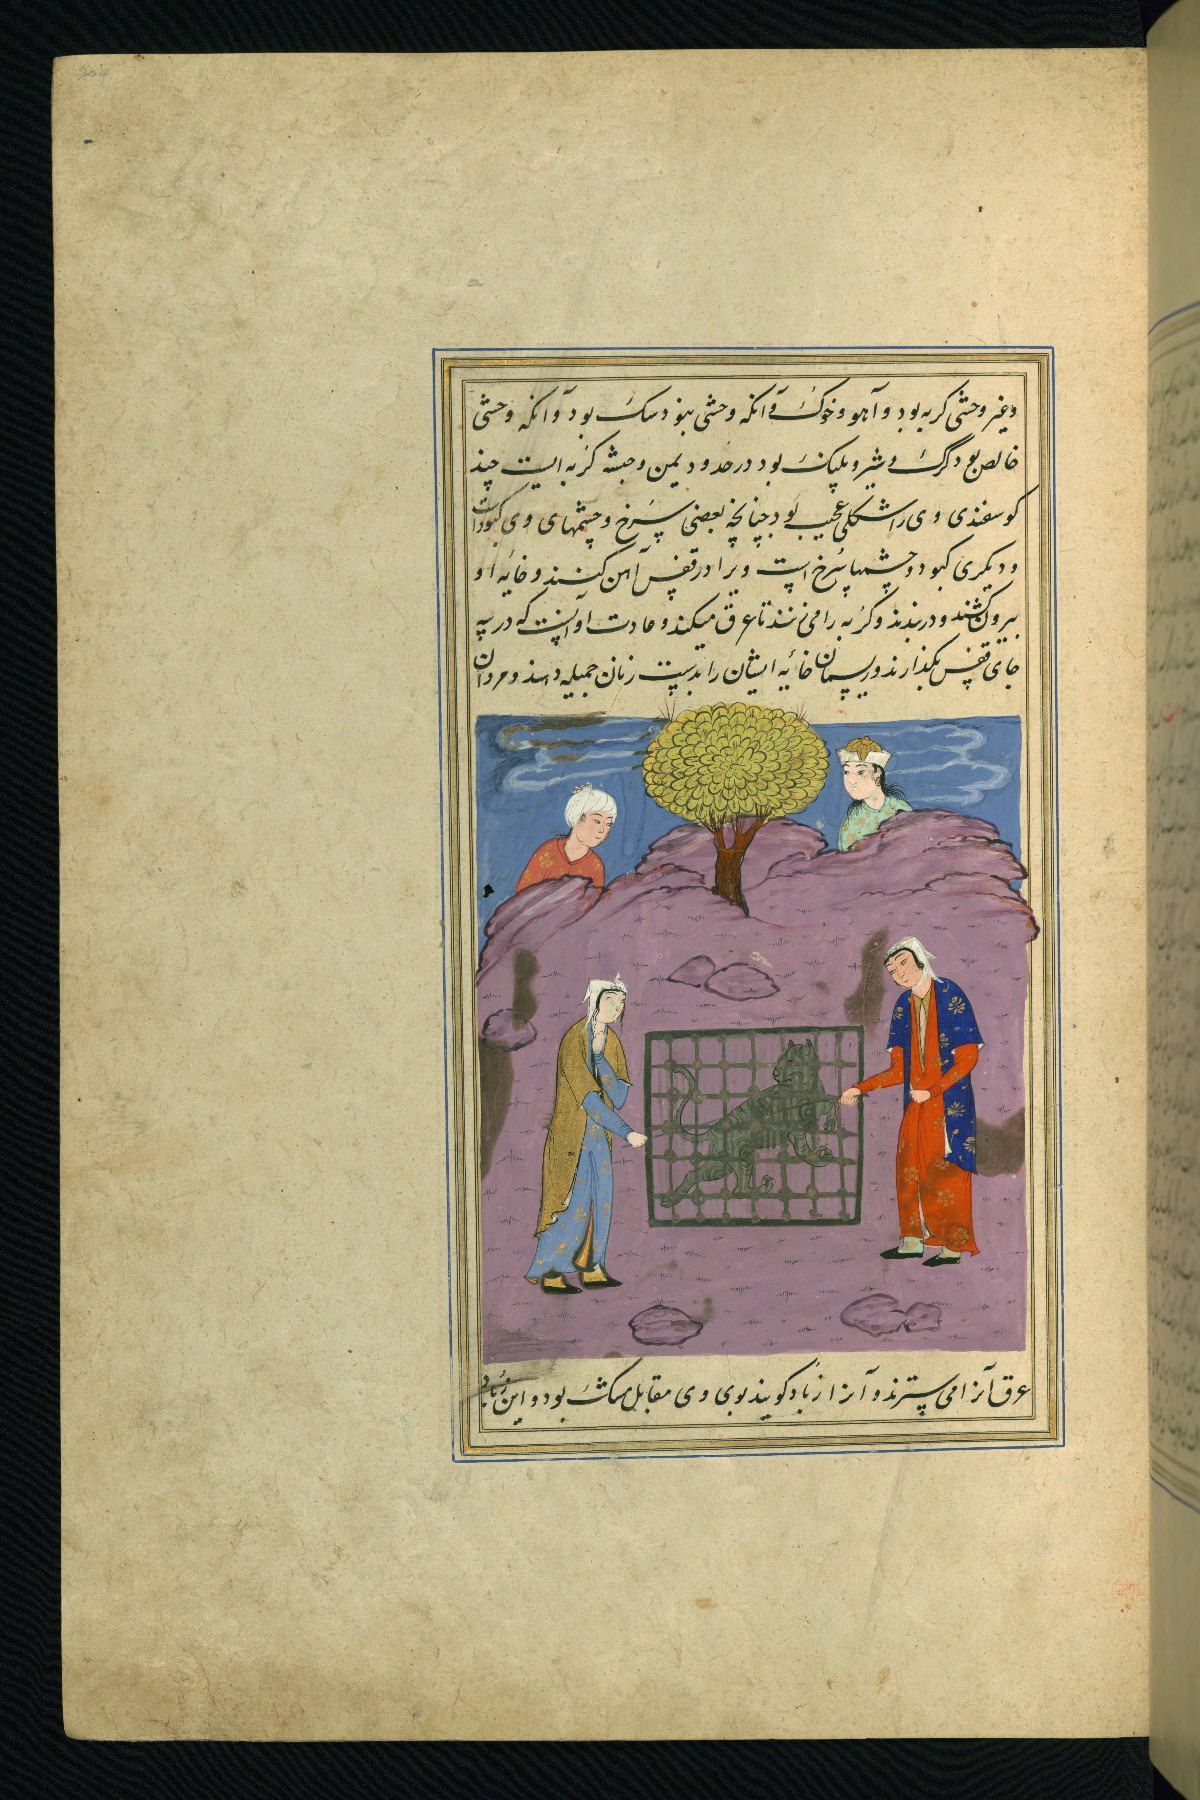 وغیر وحشی کربه بود و آهو و خوک و آنکه وحشی بنود سک بود و آنکه وحشی
خالص بود کرک و شیر و پلنک بود در حدود یمن و حبشه کربه ایست چند
کوسفندی و وی را شکلی عجیب بود چنانچه بعضی سرخ و چشمهای وی کبود است
و دیکری کبود و چشمها سرخ است ویرا در قفس آهن کنند و خایه او
بیرون کشند و در بندند و کربه را می زنند تا عرق میکند و عادت او آنست که در سه
جای قفس بکذارند و ریسمان خایه ایشان را بدست زنان جمیله دهند و مردان
عرق آنرا می سترند و آنرا زباد کویند بوی وی مقابل مشک بود و این زباد